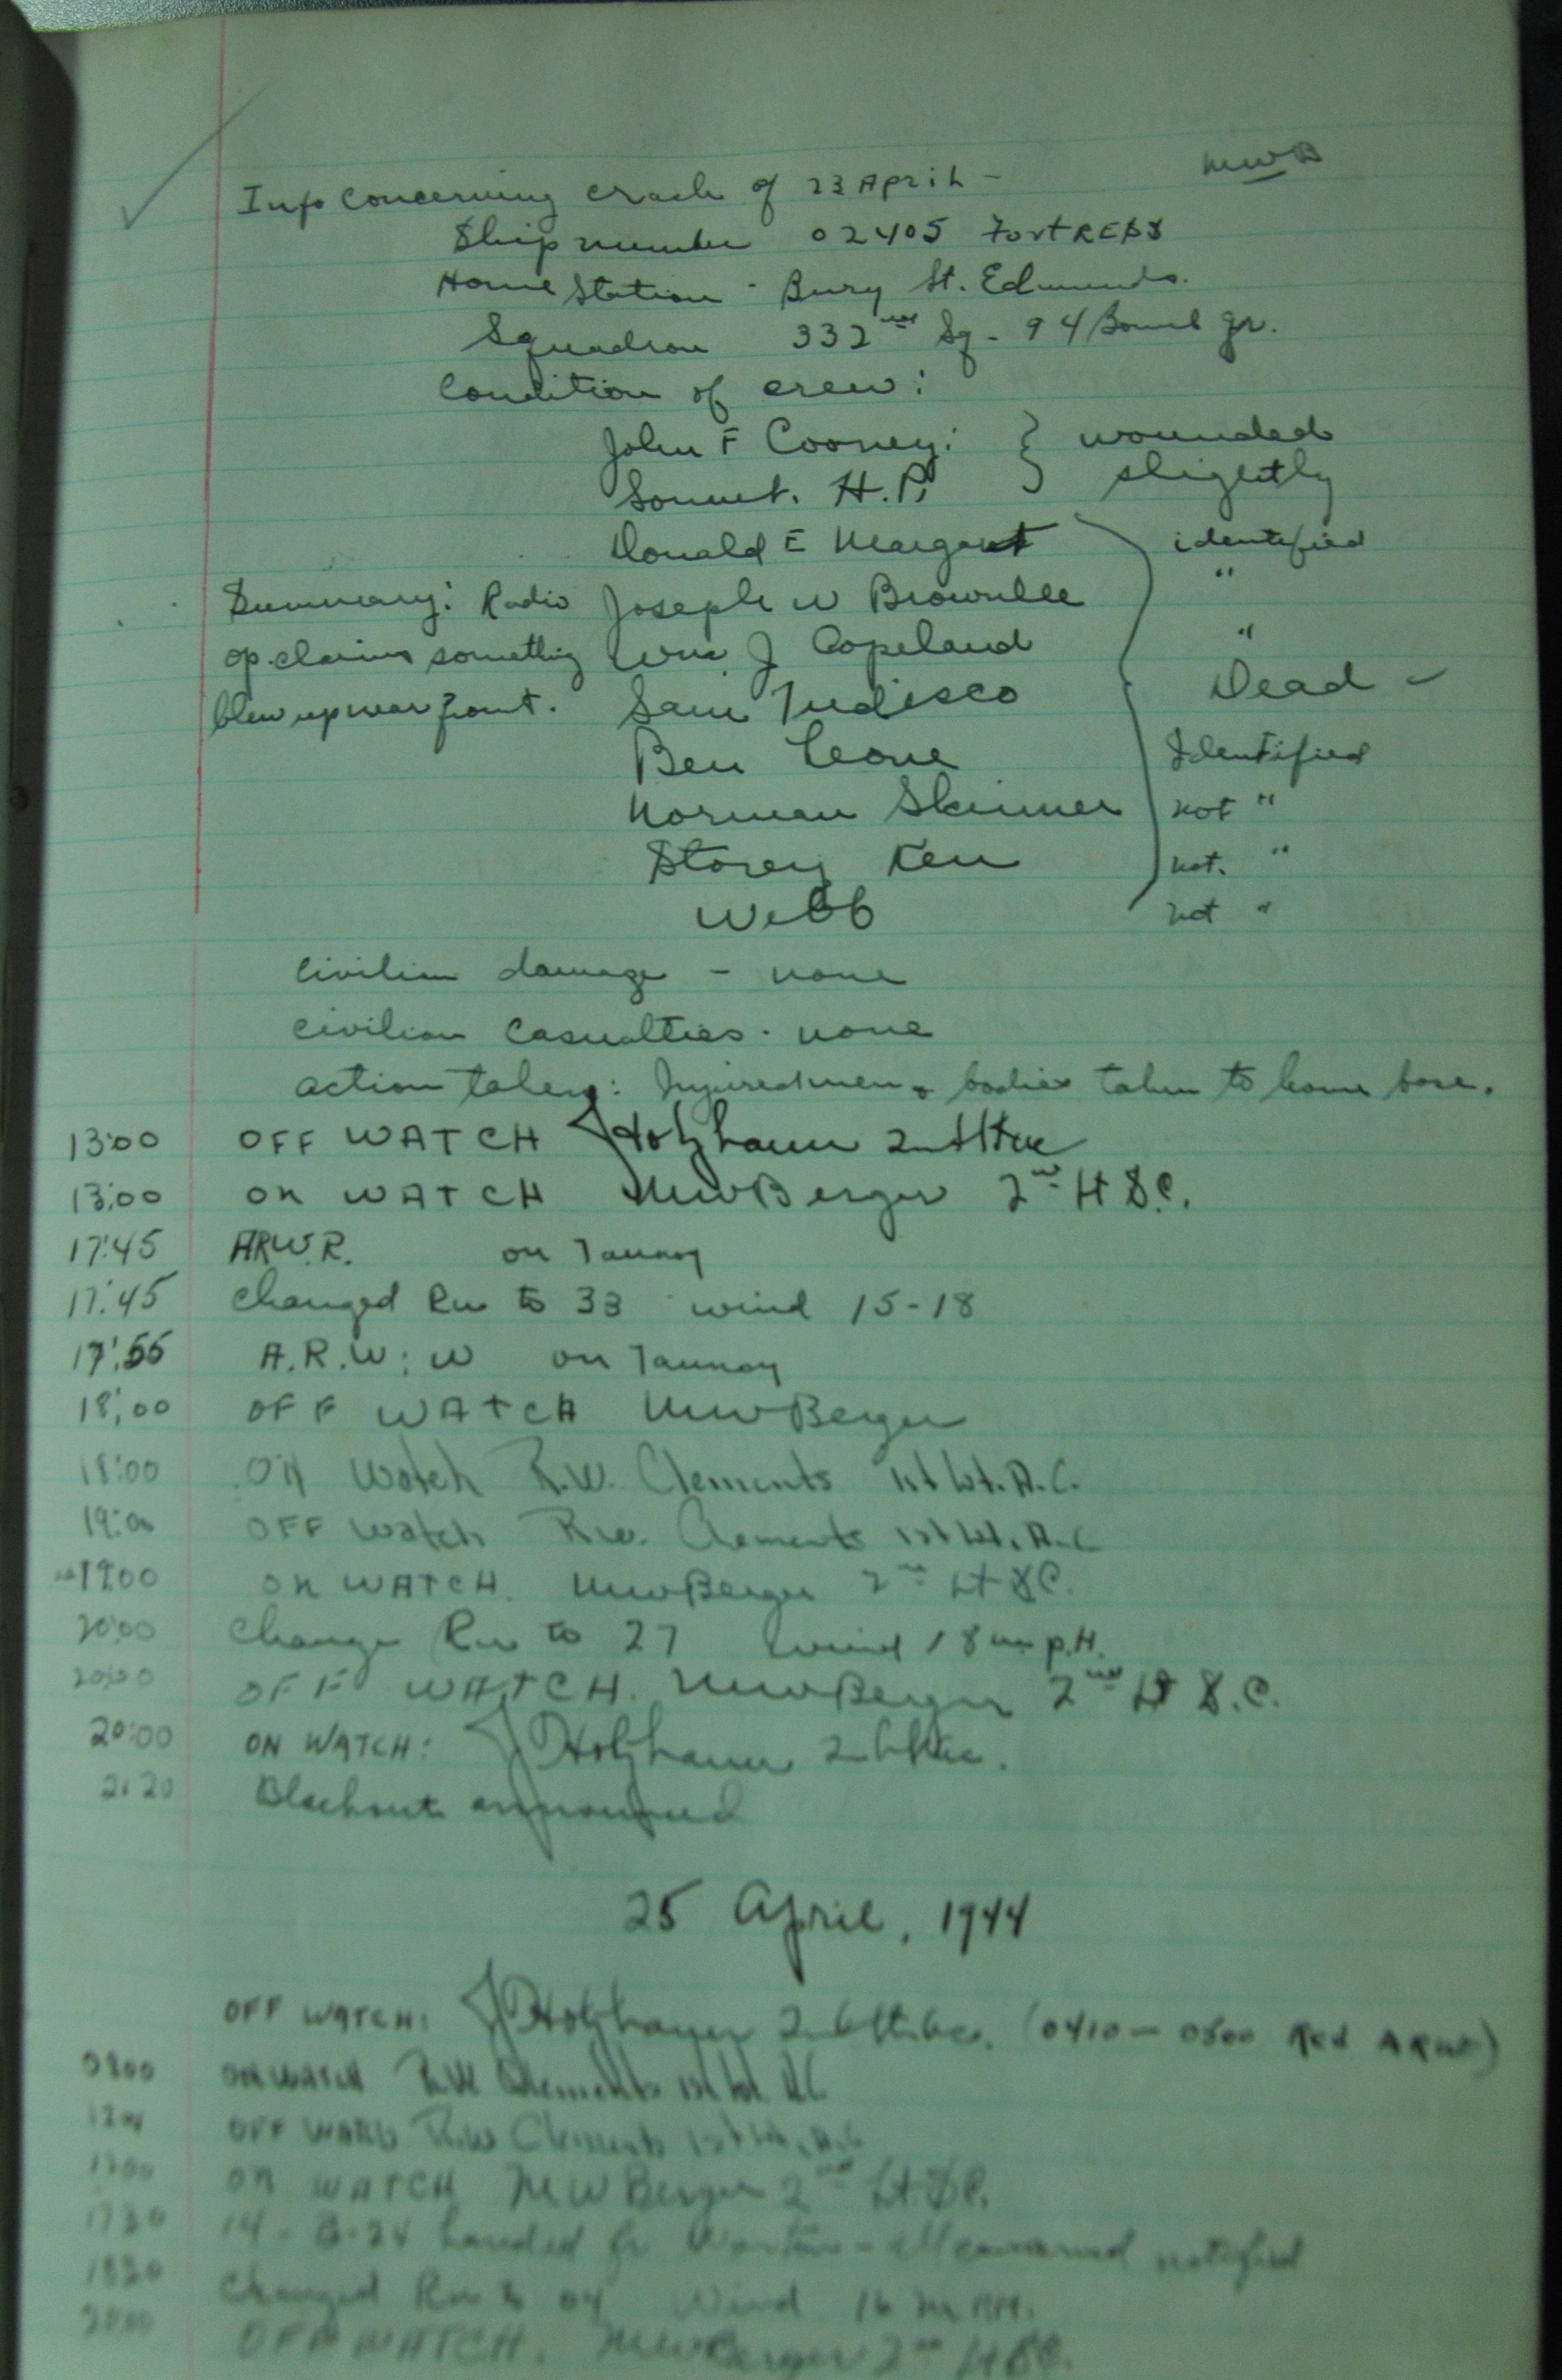 MWB
Info Concerning crash of 23 April -
Ship number 02405 FortRESS
Home Station - Bury St. Edmunds.
Squadron 332nd Sq - 94 Bomb gr.
Condition of crew:
John F Cooney: } wounded
Sonnet. H.P. slightly
Donald E identified
Summary: Radio Joseph W Brownlee "
op. claims something Wm J Copeland "
blew up near front. Sam Tudisco Dead -
Ben Leone Identified
Norman Skinner not "
Storey Ken not. "
Webb not "
Civilian damage - none
Civilian Casualties - none
action taken: Injured men & bodies taken to home base.
13:00 OFF WATCH J Holzhauer 2nd Lt
13:00 ON WATCH MWBerger 2nd Lt S.C.
17:45 ARW.R. on Tannoy
17:45 Changed Rw to 33 wind 15-18
17:55 A.R.W: W on Tannoy
18:00 OFF WATCH MWBerger
18:00 ON Watch R.W. Clements 1st Lt. A.C.
19:00 OFF Watch R.W. Clements 1st Lt. A.C
19:00 ON WATCH. MWBerger 2nd Lt SC.
20:00 Change Rw to 27 wind 18 m.p.H.
20:00 OFF WATCH. MWBerger 2nd Lt S.C.
20:00 ON WATCH: J Holzhauer 2nd Lt
21:20 Blackout announced
25 April, 1944
OFF WATCH: J Holzhauer 2nd Lt (0410 - 0500 Red ARW)
0800 ON WATCH R.W. Clements 1st Lt. AC
OFF R.W Clements 1st Lt. A.C
ON WATCH MW Berger 2nd Lt. SC.
1730 14 - B-24 landed fr - all concerned notified
1830 Changed Rw to 04 Wind 16 M.P.H.
2000 OFF WATCH. MWBerger 2nd Lt SC.